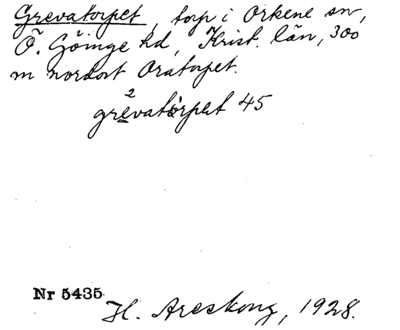 Grevatorpet, torp i Örkene sn,
Ö. Göinge hd, Krist. län, 300
m nordost Oratorpet.
2
grevatòrpet 45
Nr 5435
H. Areskoug, 1928.